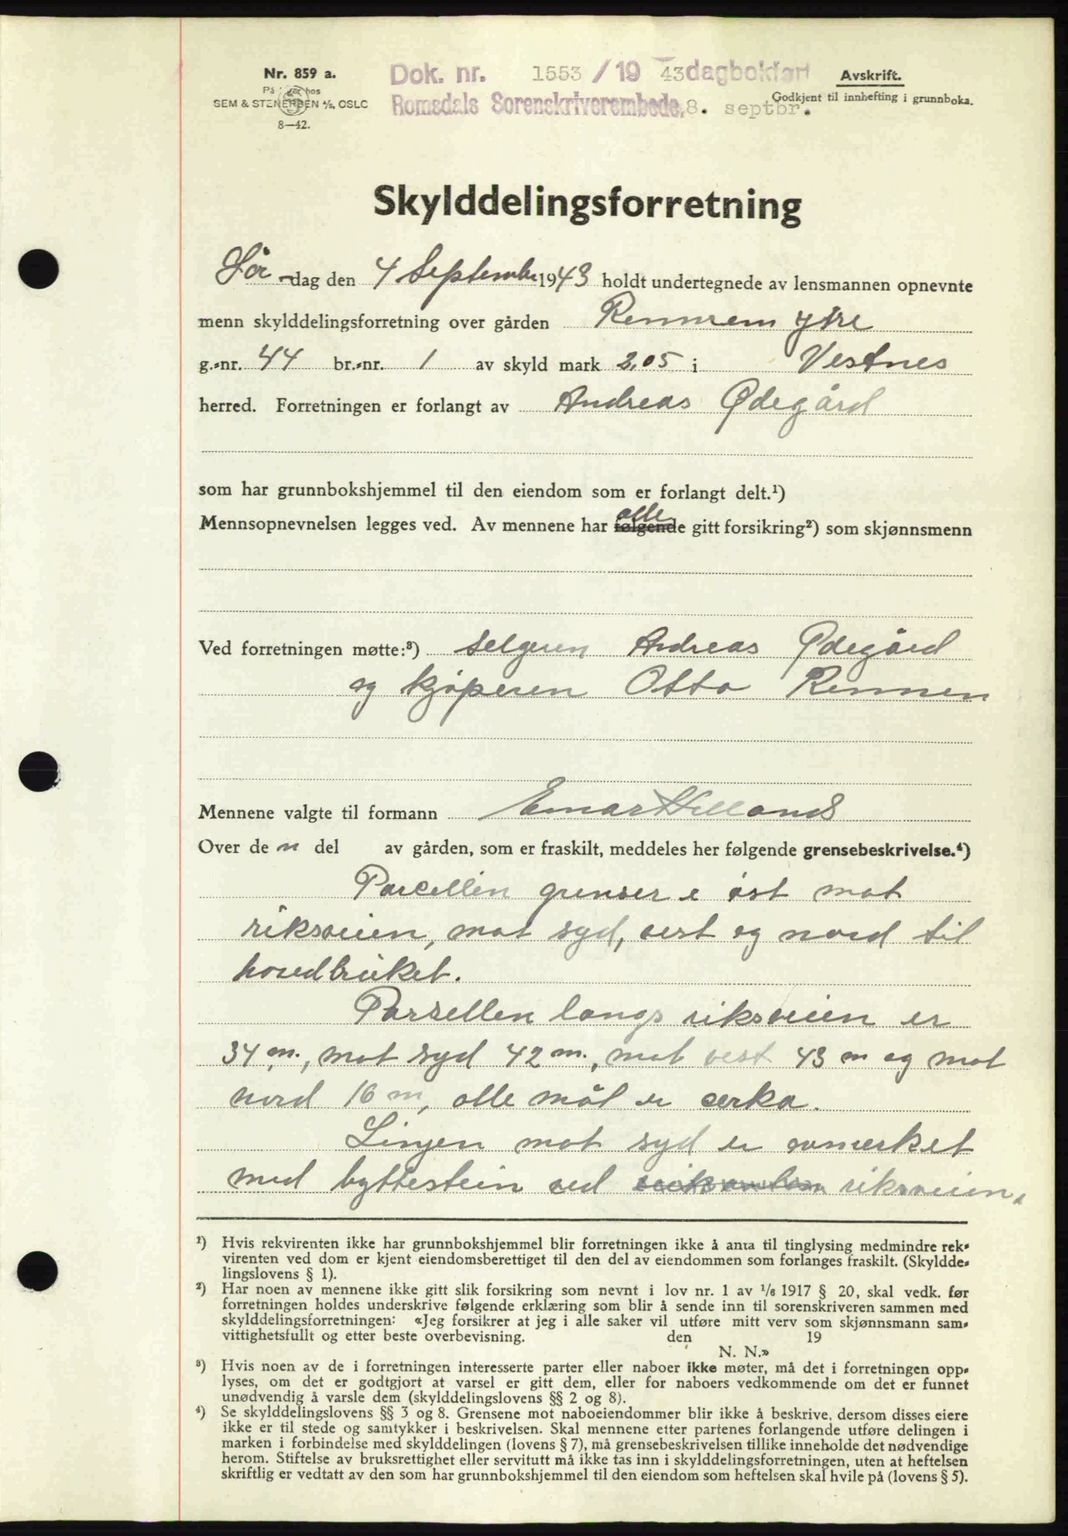 Nr. 859 a.
På lager hos
SEM & STENERSEN A/S, OSLO
8—42.
Dok. nr. 1553 / 19 43 dagbokført
Romsdals Sorenskriverembede, 8. septbr.
Avskrift.
Godkjent til innhefting i grunnboka.
Skylddelingsforretning
Lör-dag den 4 September 1943 holdt undertegnede av lensmannen opnevnte
menn skylddelingsforretning over gården Remmem ytre
g.-nr. 44 br.-nr. 1 av skyld mark 2,05 i Vestnes
herred. Forretningen er forlangt av Andreas Ødegård
som har grunnbokshjemmel til den eiendom som er forlangt delt.¹)
alle
Mennsopnevnelsen legges ved. Av mennene har følgende gitt forsikring²) som skjønnsmenn
Ved forretningen møtte:³) Selgeren Andreas Ødegård
og kjøperen Otto Remmem
Mennene valgte til formann Einar Helland
Over de n del av gården, som er fraskilt, meddeles her følgende grensebeskrivelse.⁴)
Parcellen grenser i øst mot
riksveien, mot syd, vest og nord til
hovedbruket.
Parsellen langs riksveien er
34 m., mot syd 42 m., mot vest 43 m og mot
nord 16 m, alle mål er cerka.
Linjen mot syd er avmerket
med byttestein ved riksveien,
¹) Hvis rekvirenten ikke har grunnbokshjemmel blir forretningen ikke å anta til tinglysing medmindre rek-
virenten ved dom er kjent eiendomsberettiget til den del av eiendommen som forlanges fraskilt. (Skyldde-
lingslovens § 1).
²) Har noen av mennene ikke gitt slik forsikring som nevnt i lov nr. 1 av 1/6 1917 § 20, skal vedk. før
forretningen holdes underskrive følgende erklæring som blir å sende inn til sorenskriveren sammen med
skylddelingsforretningen: «Jeg forsikrer at jeg i alle saker vil utføre mitt verv som skjønnsmann sam-
vittighetsfullt og etter beste overbevisning. den 19
N. N.»
³) Hvis noen av de i forretningen interesserte parter eller naboer ikke møter, må det i forretningen opp-
lyses, om det er godtgjort at varsel er gitt dem, eller for naboers vedkommende om det er funnet
unødvendig å varsle dem (skylddelingslovens §§ 2 og 8).
⁴) Se skylddelingslovens §§ 3 og 8. Grensene mot naboeiendommer blir ikke å beskrive, dersom disses eiere
ikke er til stede og samtykker i beskrivelsen. Skal mennene etter partenes forlangende utføre delingen i
marken i forbindelse med skylddelingen (lovens § 7), må grensebeskrivelsen tillike inneholde det nødvendige
herom. Stiftelse av bruksrettighet eller servitutt må ikke tas inn i skylddelingsforretningen, uten at heftelsen
skriftlig er vedtatt av den som har grunnbokshjemmel til den eiendom som heftelsen skal hvile på (lovens § 5).